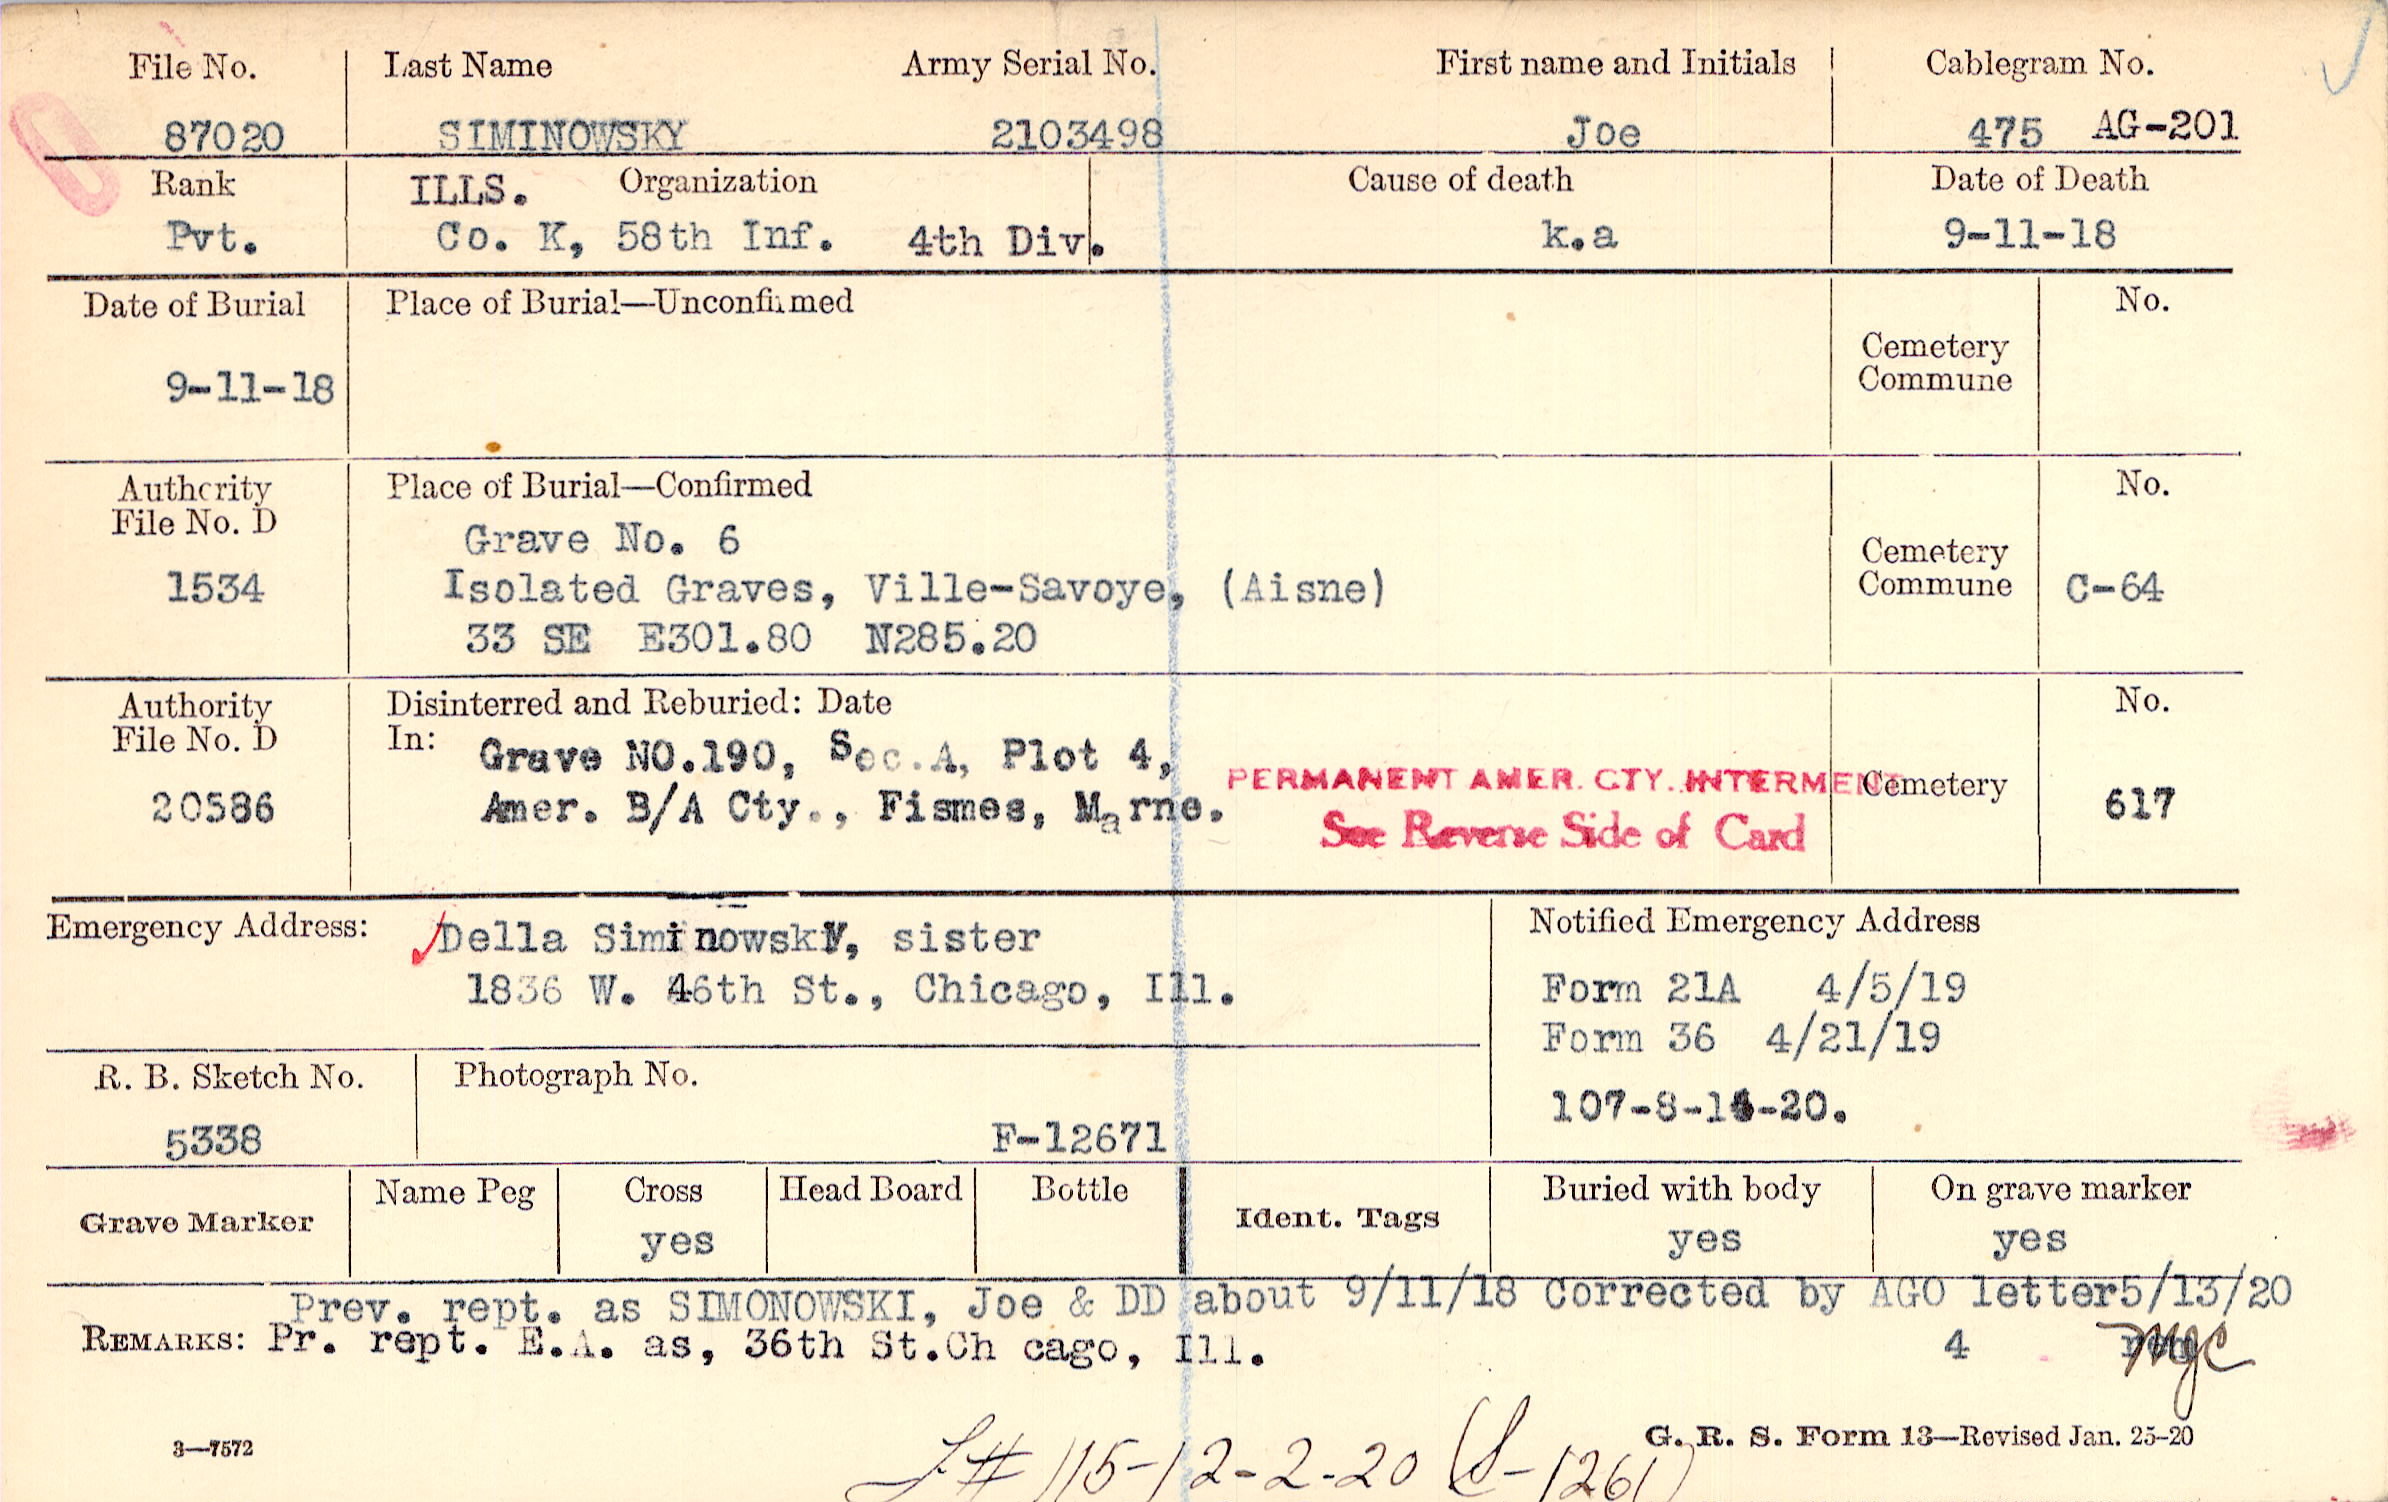 File No. Last Name Army Serial No. First name and Initials Cablegram No.
87020 SIMINOWSKY 2103498 Joe 475 AG-201
Rank ILLS. Organization Cause of death Date of Death
Pvt. Co. K, 58th Inf. 4th Div. k.a 9-11-18
Date of Burial Place of Burial—Unconfirmed No.
Cemetery
Commune
9-11-18
Authority Place of Burial—Confirmed No.
File No. D
Grave No. 6
Cemetery
1534 Isolated Graves, Ville-Savoye, (Aisne) Commune C-64
33 SE E301.80 N285.20
Authority Disinterred and Reburied: Date No.
File No. D In:
Grave NO.190, Sec.A, Plot 4,
PERMANENT AMER. CTY. INTERMENT Cemetery
20586 Amer. B/A Cty., Fismes, Marne. 617
See Reverse Side of Card
Emergency Address: Della Siminowsky, sister Notified Emergency Address
1836 W. 46th St., Chicago, Ill. Form 21A 4/5/19
Form 36 4/21/19
R. B. Sketch No. Photograph No.
107-8-1 -20.
5338 F-12671
Grave Marker Name Peg Cross Head Board Bottle Ident. Tags Buried with body On grave marker
yes yes yes
Prev. rept. as SIMONOWSKI, Joe & DD about 9/11/18 Corrected by AGO letter5/13/20
REMARKS: Pr. rept. E.A. as, 36th St.Ch cago, Ill. 4 mgc
3—7572 G. R. S. Form 13—Revised Jan. 25-20
L# 115-12-2-20 (S-1261)